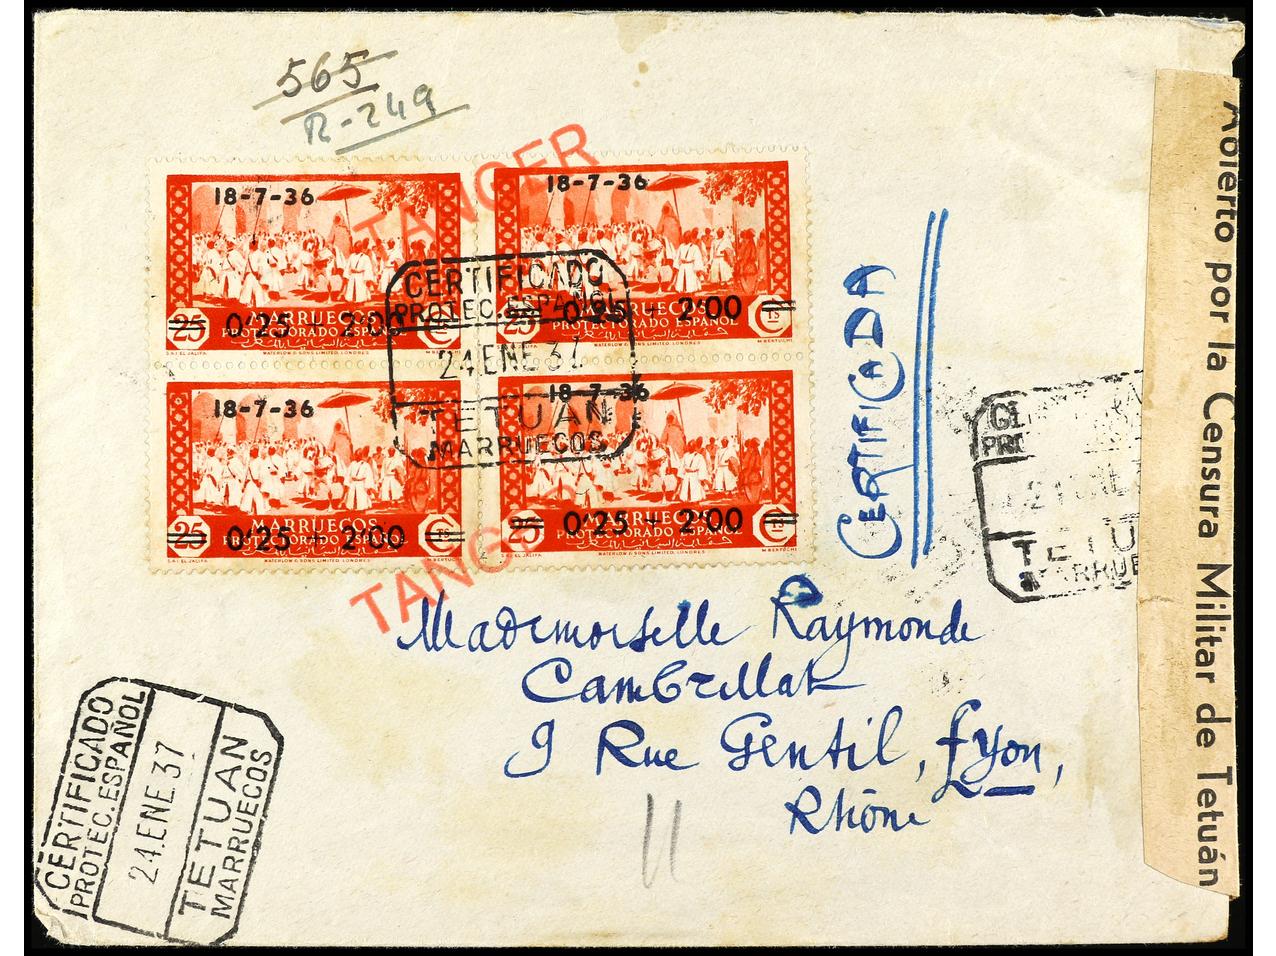 565
R-249
TANGER
18-7-36
18-7-36
25 MARRUECOS
PROTECTORADO ESPAÑOL
0'25 + 2'00
S.A.I. EL JALIFA. WATERLOW & SONS LIMITED, LONDRES. M. BERTUCHI
25 MARRUECOS
PROTECTORADO ESPAÑOL
0'25 + 2'00
CERTIFICADO
PROTEC. ESPAÑOL
24 ENE 37
TETUAN
MARRUECOS
18-7-36
18-7-36
25 MARRUECOS
PROTECTORADO ESPAÑOL
0'25 + 2'00
S.A.I. EL JALIFA. WATERLOW & SONS LIMITED, LONDRES. M. BERTUCHI
25 MARRUECOS
PROTECTORADO ESPAÑOL
0'25 + 2'00
S.A.I. EL JALIFA. WATERLOW & SONS LIMITED, LONDRES. M. BERTUCHI
TANGER
CERTIFICADA
TETU
MARRUE
Abierto por la Censura Militar de Tetuán
Mademoiselle Raymonde
Cambrillat
9 Rue Gentil, Lyon,
Rhône
11
CERTIFICADO
PROTEC. ESPAÑOL
24 ENE 37
TETUAN
MARRUECOS